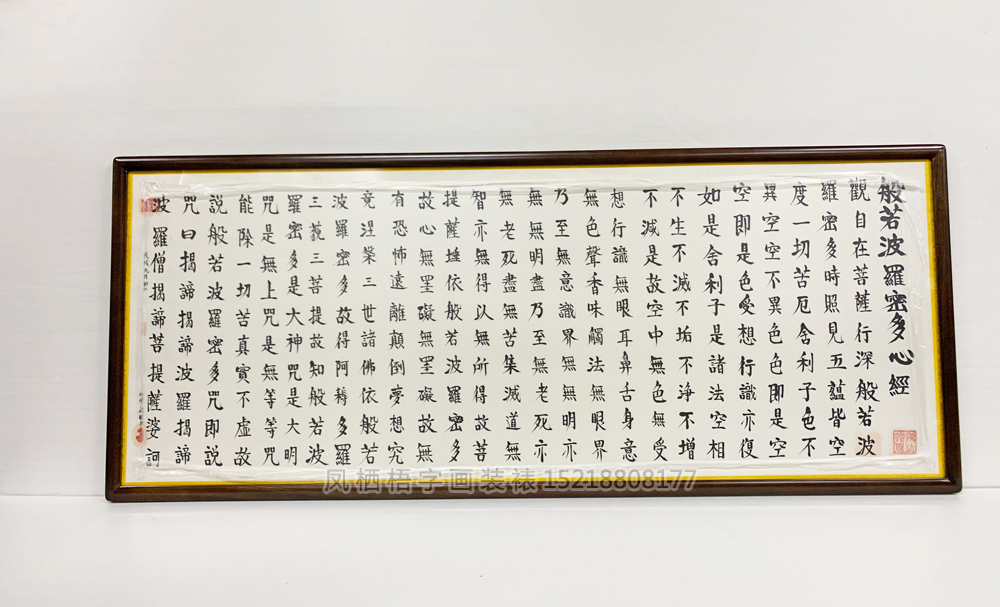 般若波羅密多心經
觀自在菩薩行深般若波
羅密多時照見五蘊皆空
度一切苦厄舍利子色不
異空空不異色色即是空
空即是色受想行識亦復
如是舍利子是諸法空相
不生不滅不垢不淨不增
不減是故空中無色無受
想行識無眼耳鼻舌身意
無色聲香味觸法無眼界
乃至無意識界無無明亦
無無明盡乃至無老死亦
無老死盡無苦集滅道無
智亦無得以無所得故菩
提薩埵依般若波羅密多
故心無罣礙無罣礙故無
有恐怖遠離顛倒夢想究
竟涅槃三世諸佛依般若
波羅密多故得阿耨多羅
三藐三菩提故知般若波
羅密多是大神咒是大明
咒是無上咒是無等等咒
能除一切苦真實不虛故
說般若波羅密多咒即說
咒曰揭諦揭諦波羅揭諦
波羅僧揭諦菩提薩婆訶
凤栖梧字画装裱15218808177